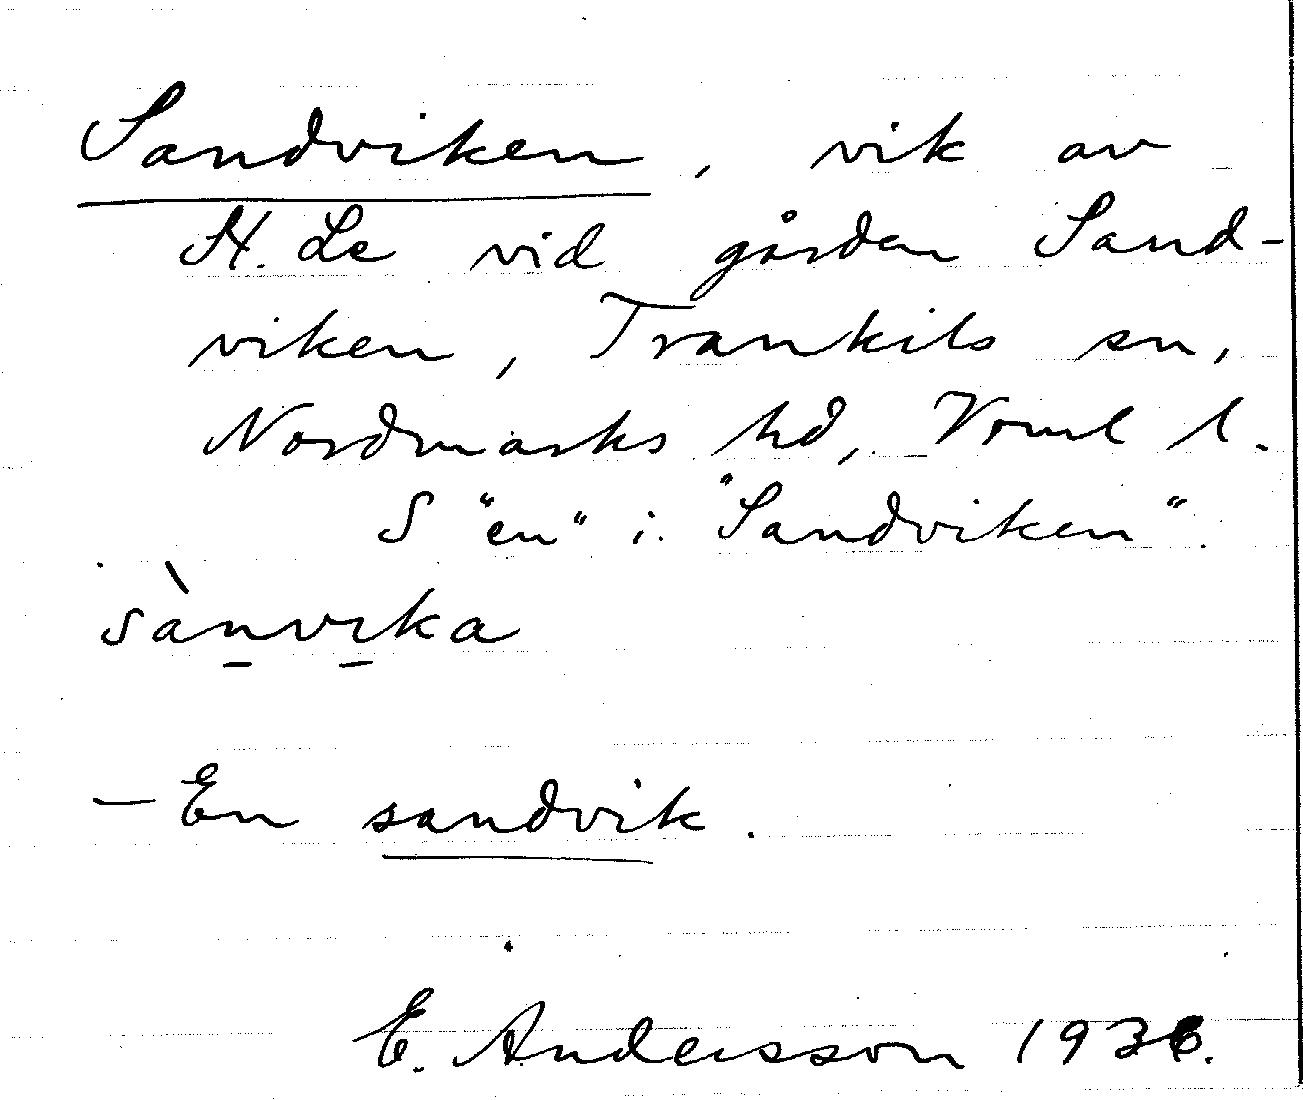 Sandviken, vik av
St. Le vid gården Sand-
viken, Trankils sn,
Nordmarks hd, Vrml l.
S "en" i "Sandviken".
sànvika
— En sandvik.
E. Andersson